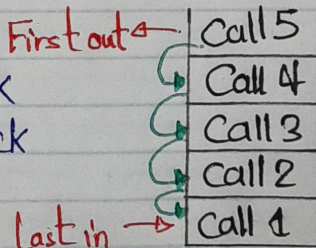 First out Call 5
k Call 4
k Call 3
Call 2
last in Call 1